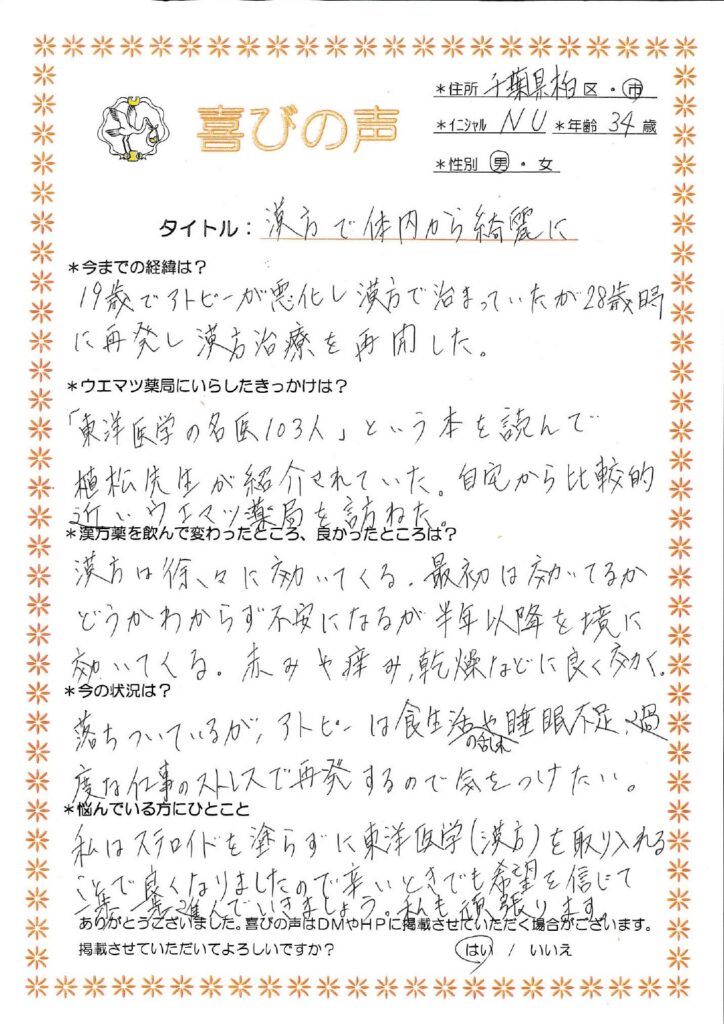 喜びの声
*住所 千葉県柏 区・市
*イニシャル NU *年齢 34 歳
*性別 男・女
タイトル: 漢方で体内から綺麗に
*今までの経緯は?
19歳でアトピーが悪化し漢方で治まっていたが28歳時
に再発し漢方治療を再開した。
*ウエマツ薬局にいらしたきっかけは?
「東洋医学の名医103人」という本を読んで
植松先生が紹介されていた。自宅から比較的
近いウエマツ薬局を訪ねた。
*漢方薬を飲んで変わったところ、良かったところは?
漢方は徐々に効いてくる。最初は効いてるか
どうかわからず不安になるが半年以降を境に
効いてくる。赤みや痒み、乾燥などに良く効く。
*今の状況は?
落ちついているが、アトピーは食生活の乱れや睡眠不足、過
度な仕事のストレスで再発するので気をつけたい。
*悩んでいる方にひとこと
私はステロイドを塗らずに東洋医学(漢方)を取り入れる
ことで良くなりましたので辛いときでも希望を信じて
一歩一歩進んでいきましょう。私も頑張ります。
ありがとうございました。喜びの声はDMやHPに掲載させていただく場合がございます。
掲載させていただいてよろしいですか? はい / いいえ